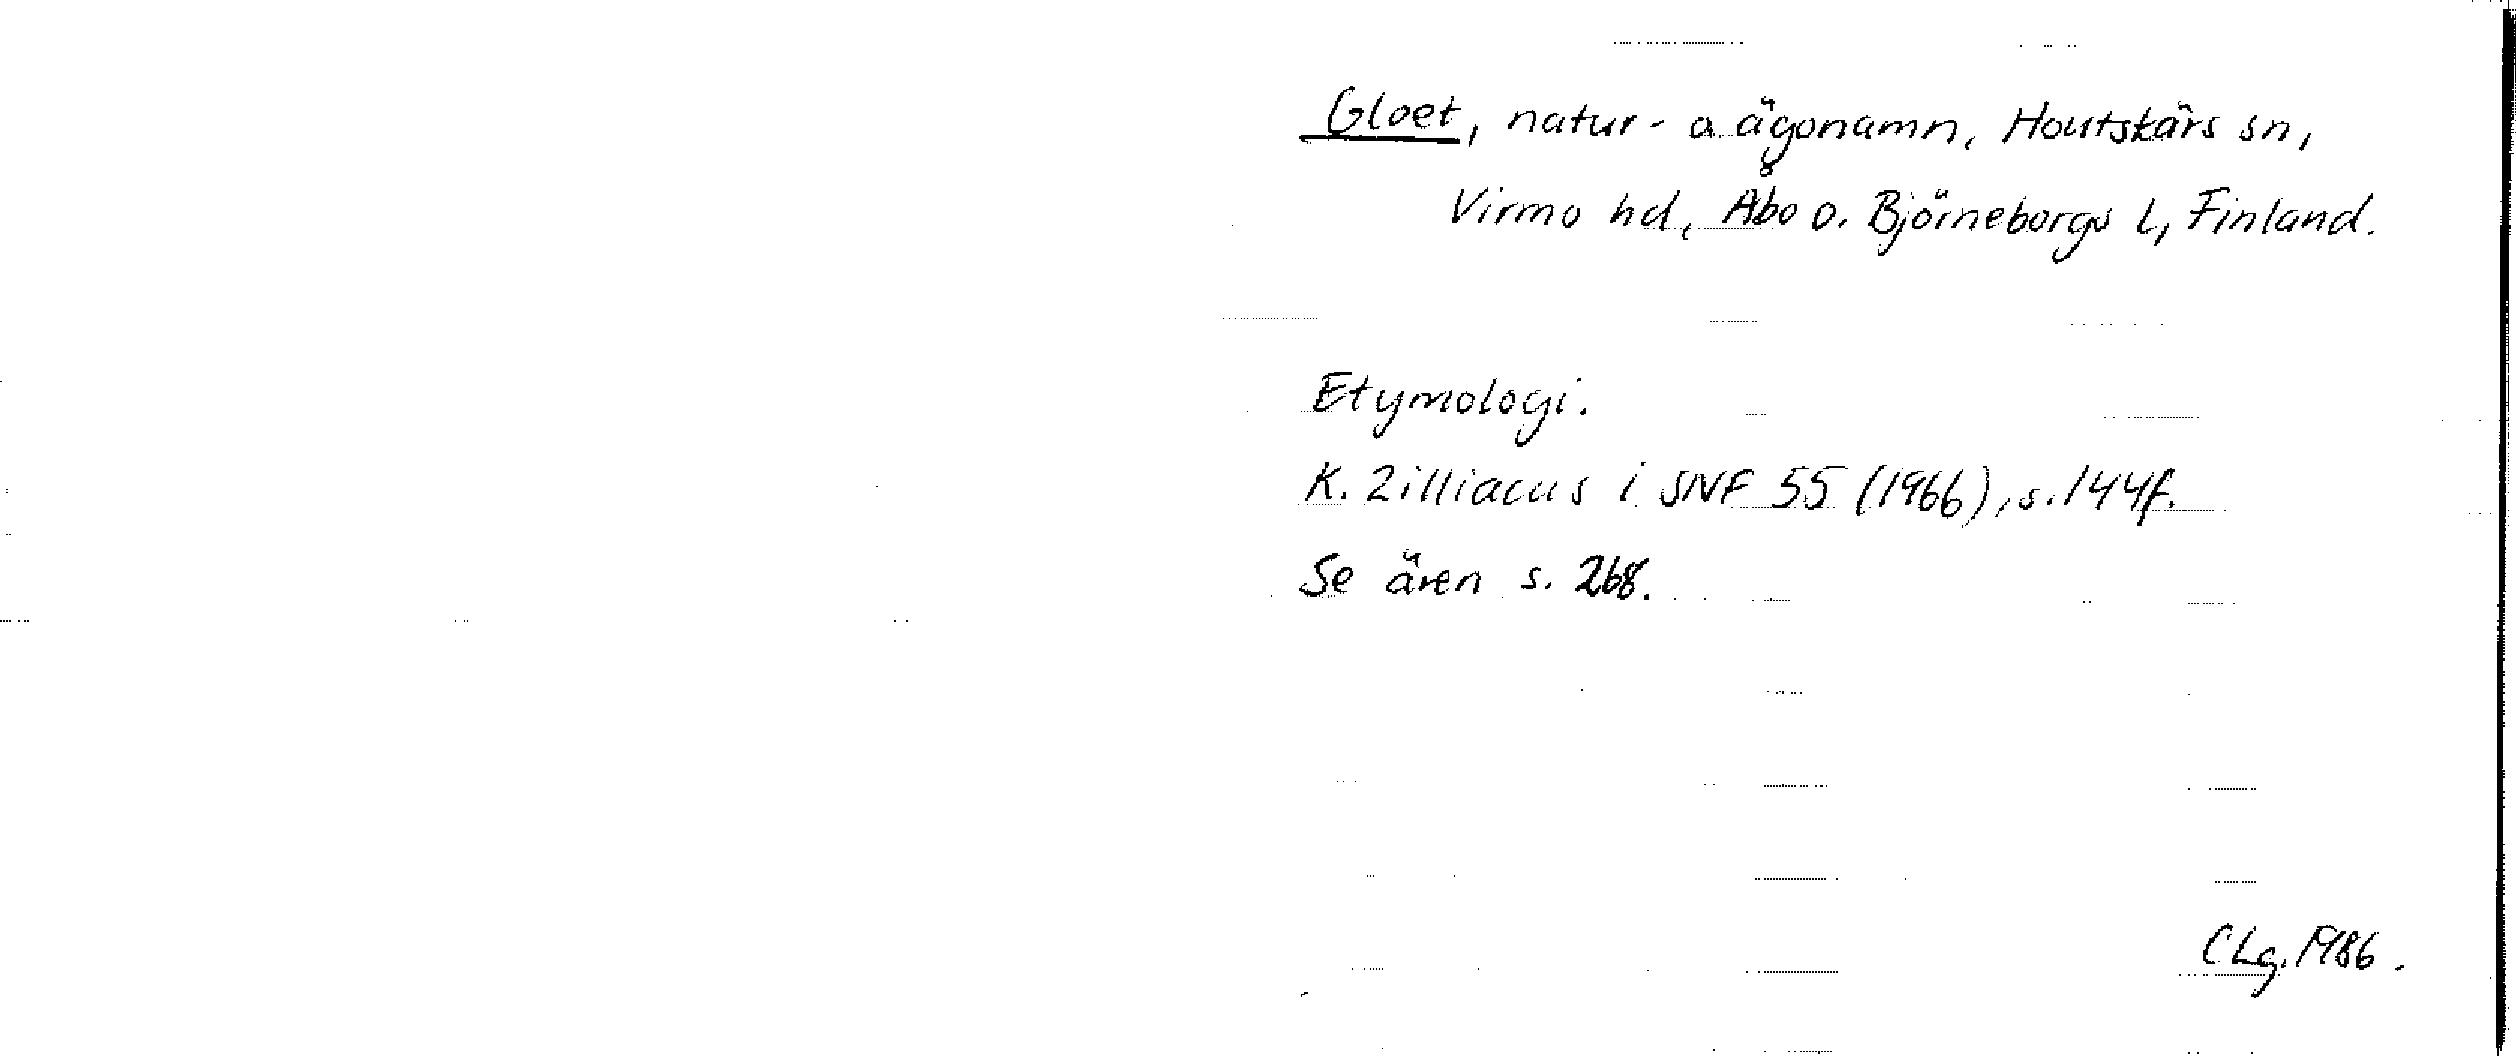 Gloet, natur- o. ägonamn, Houtskärs sn,
Virmo hd, Åbo o. Björneborgs l, Finland.
Etymologi.
K. Zilliacus i SNF 55 (1966), s. 144f.
Se även s. 268.
CLg. 1986.